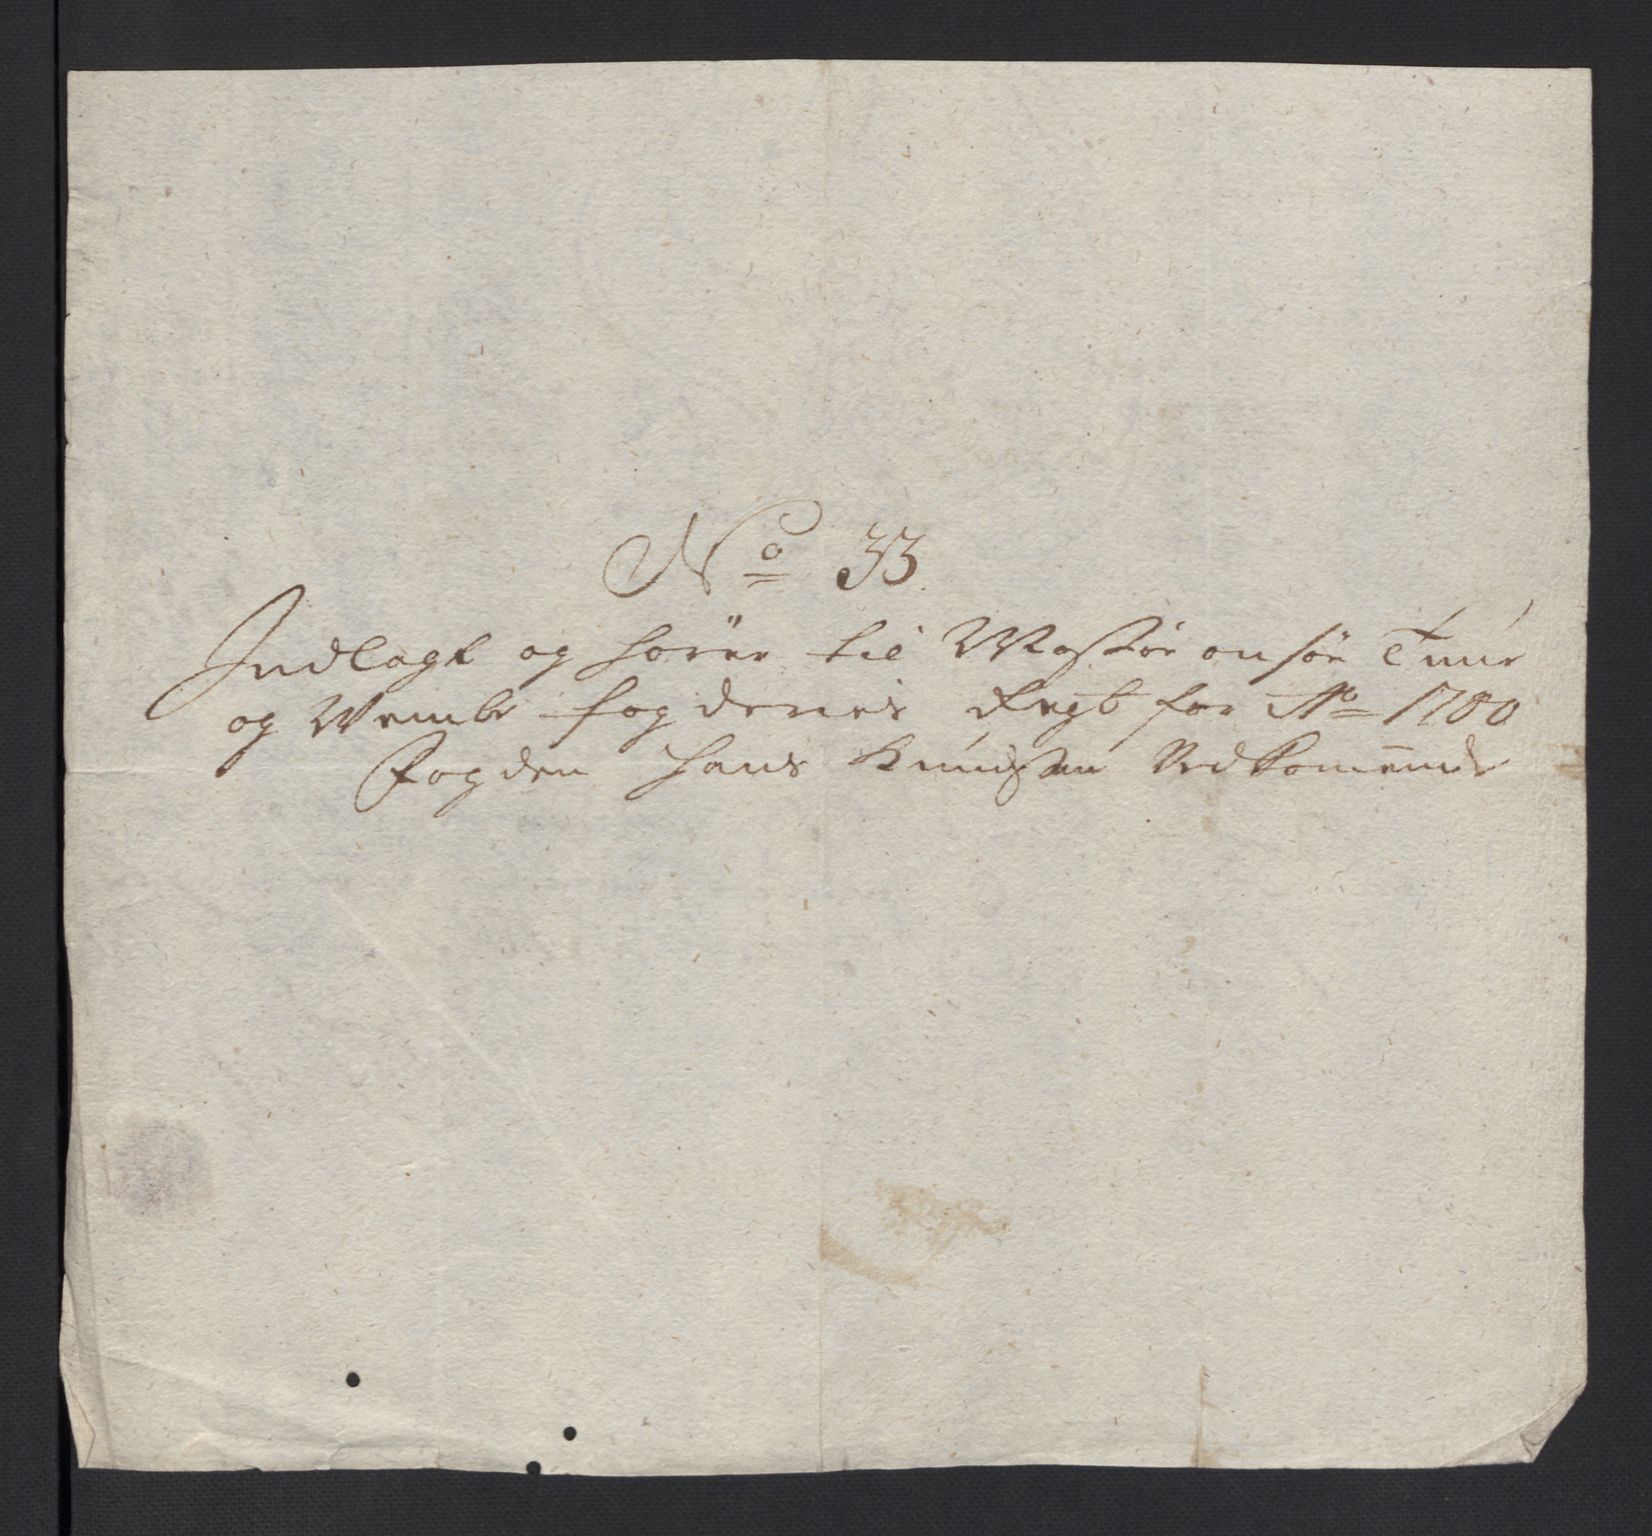 No 33
Indlagt og hörer til Mosöe onsöe Tune
og Wemble fogderies Regb for Ao 1700
Fogden Hans Knudsen Vedkomende